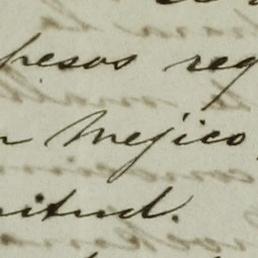 pesos reg
n Mejico,
itud.